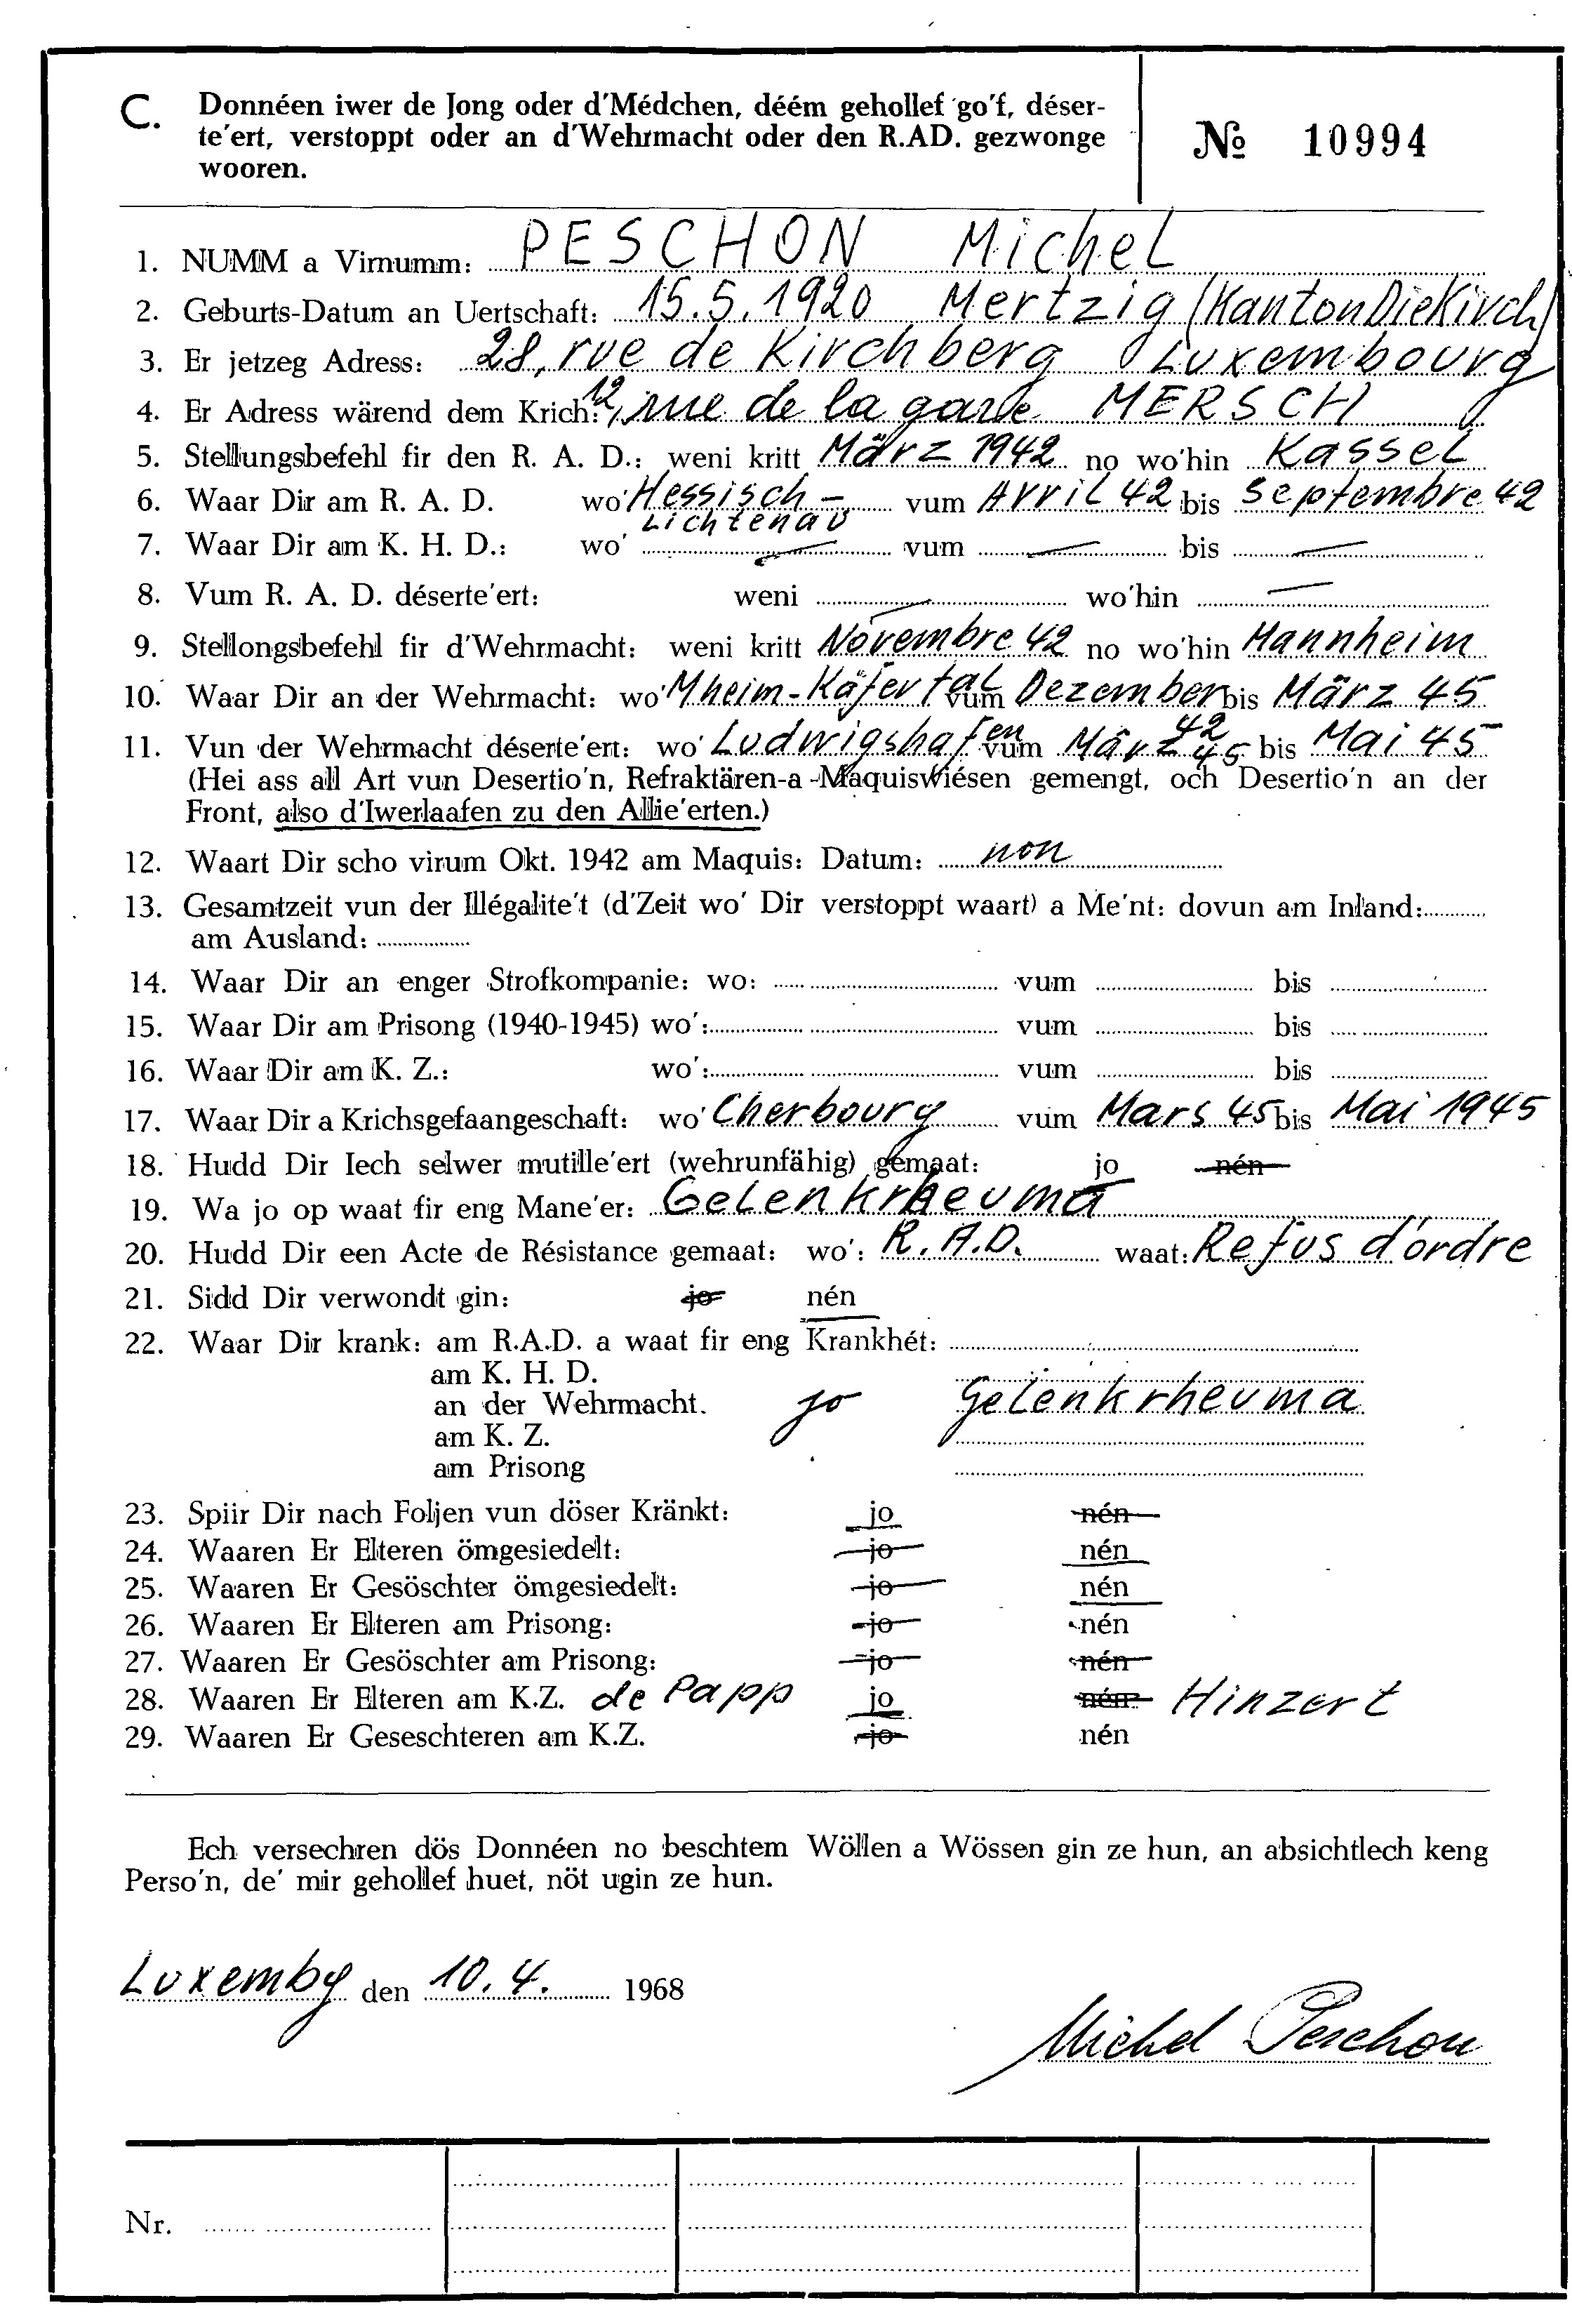 C. Donnéen iwer de Jong oder d'Médchen, déém gehollef go'f, déser-
te'ert, verstoppt oder an d'Wehrmacht oder den R.AD. gezwonge
wooren.
№ 10994
1. NUMM a Virnumm: PESCHON Michel
2. Geburts-Datum an Uertschaft: 15.5.1920 Mertzig (Kanton Diekirch)
3. Er jetzeg Adress: 28, rue de Kirchberg Luxembourg
4. Er Adress wärend dem Krich: 12, rue de la gare MERSCH
5. Stellungsbefehl fir den R. A. D.: weni kritt März 1942 no wo'hin Kassel
6. Waar Dir am R. A. D. wo' Hessisch- vum Avril 42 bis Septembre 42
Lichtenau
7. Waar Dir am K. H. D.: wo' — vum — bis —
8. Vum R. A. D. déserte'ert: weni — wo'hin —
9. Stellongsbefehl fir d'Wehrmacht: weni kritt Novembre 42 no wo'hin Mannheim
10. Waar Dir an der Wehrmacht: wo' Mheim-Käfertal vum Dezember bis März 45
42
11. Vun der Wehrmacht déserte'ert: wo' Ludwigshafen vum März 45 bis Mai 45
(Hei ass all Art vun Desertio'n, Refraktären-a -Maquiswiésen gemengt, och Desertio'n an der
Front, also d'Iwerlaafen zu den Allie'erten.)
12. Waart Dir scho virum Okt. 1942 am Maquis: Datum: non
13. Gesamtzeit vun der Illégalite't (d'Zeit wo' Dir verstoppt waart) a Me'nt: dovun am Inland:
am Ausland:
14. Waar Dir an enger Strofkompanie: wo: vum bis
15. Waar Dir am Prisong (1940-1945) wo': vum bis
16. Waar Dir am K. Z.: wo': vum bis
17. Waar Dir a Krichsgefaangeschaft: wo' Cherbourg vum Mars 45 bis Mai 1945
18. Hudd Dir Iech selwer mutille'ert (wehrunfähig) gemaat: jo nén
19. Wa jo op waat fir eng Mane'er: Gelenkrheuma
20. Hudd Dir een Acte de Résistance gemaat: wo': R.A.D. waat: Refus d'ordre
21. Sidd Dir verwondt gin: jo nén
22. Waar Dir krank: am R.A.D. a waat fir eng Krankhét:
am K. H. D.
an der Wehrmacht. jo Gelenkrheuma
am K. Z.
am Prisong
23. Spiir Dir nach Foljen vun döser Kränkt: jo nén
24. Waaren Er Elteren ömgesiedelt: jo nén
25. Waaren Er Gesöschter ömgesiedelt: jo nén
26. Waaren Er Elteren am Prisong: jo nén
27. Waaren Er Gesöschter am Prisong: jo nén
28. Waaren Er Elteren am K.Z. de Papp jo nén Hinzert
29. Waaren Er Geseschteren am K.Z. jo nén
Ech versechren dös Donnéen no beschtem Wöllen a Wössen gin ze hun, an absichtlech keng
Perso'n, de' mir gehollef huet, nöt ugin ze hun.
Luxembg den 10.4. 1968
Michel Peschon
Nr.